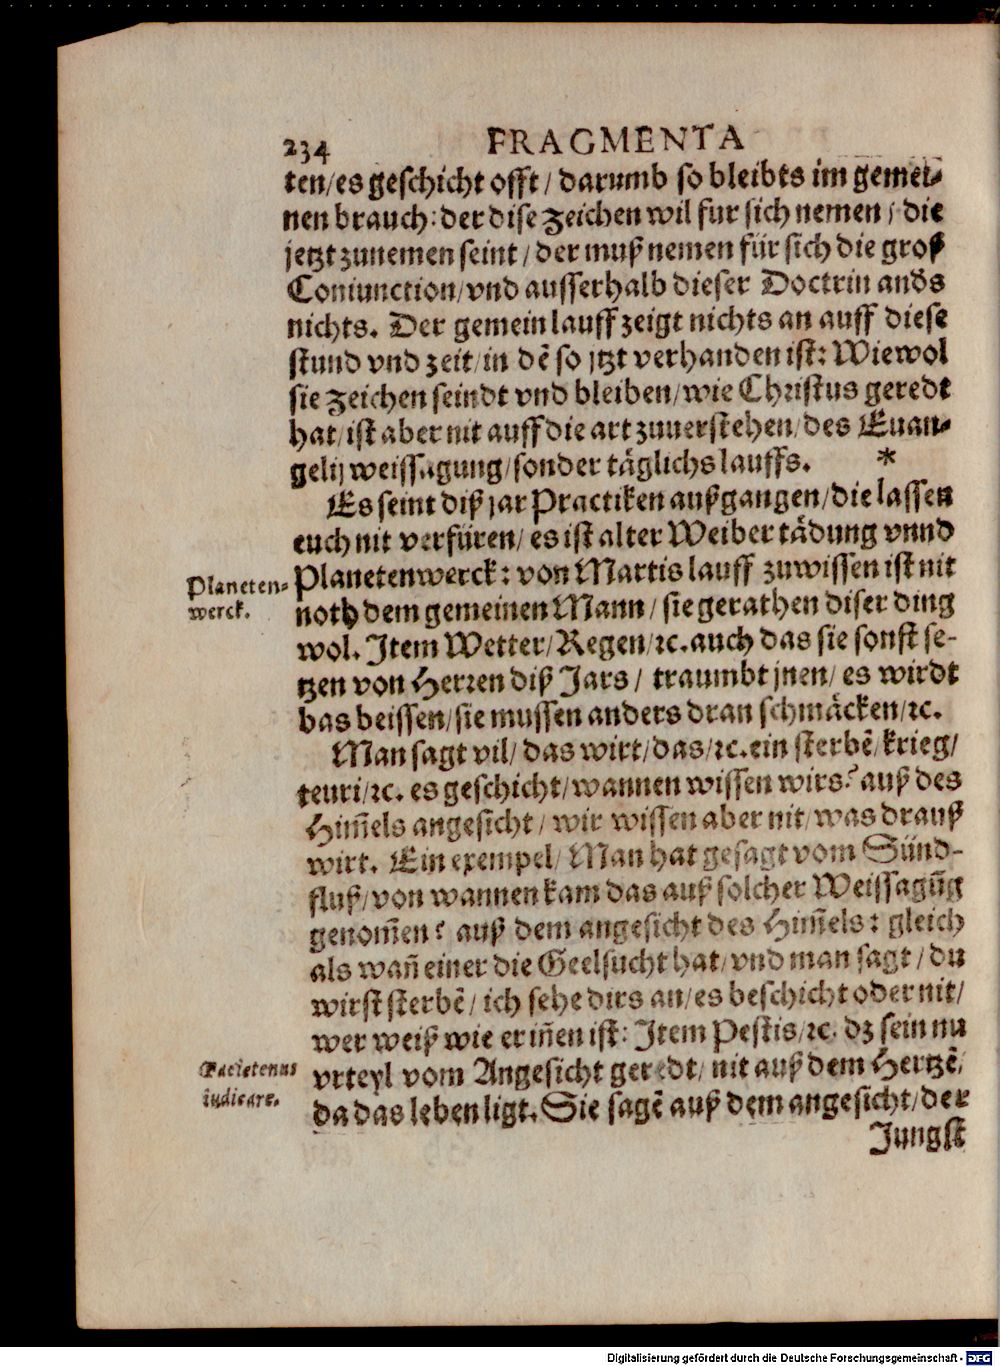 234 FRAGMENTA
ten/es geschicht offt/ darumb so bleibts im gemei-
nen brauch: der dise zeichen wil fur sich nemen/ die
jetzt zunemen seint/ der muß nemen für sich die groß
Coniunction/vnd ausserhalb dieser Doctrin anđs
nichts. Der gemein lauff zeigt nichts an auff diese
stund vnd zeit/in dē so jtzt verhanden ist: Wiewol
sie zeichen seindt vnd bleiben/wie Christus geredt
hat/ist aber nit auff die art zuuerstehen/des Euan-
gelij weissagung/sonder täglichs lauffs. *
Es seint diß jar Practiken außgangen/die lassen
euch nit verfüren/ es ist alter Weiber tädung vnnd
Planeten-
werck.
Planetenwerck: von Martis lauff zuwissen ist nit
noth dem gemeinen Mann/ sie gerathen diser ding
wol. Item Wetter/Regen/ꝛc. auch das sie sonst se-
tzen von Herren diß Jars/ traumbt jnen/ es wirdt
bas beissen/sie mussen anders dran schmäcken/ꝛc.
Man sagt vil/das wirt/das/ꝛc. ein sterbē/krieg/
teuri/ꝛc. es geschicht/wannen wissen wirs? auß des
Him̄els angesicht/ wir wissen aber nit/was drauß
wirt. Ein exempel/ Man hat gesagt vom Sünd-
fluß/von wannen kam das auß solcher Weissagūg
genom̄en? auß dem angesicht des Him̄els: gleich
als wañ einer die Geelsucht hat/vnd man sagt/du
wirst sterbē/ ich sehe dirs an/es beschicht oder nit/
wer weiß wie er iñen ist: Item Pestis/ꝛc. dz sein nu
Facietenus
iudicare.
vrteyl vom Angesicht geredt/ nit auß dem Hertzē/
da das leben ligt. Sie sagē auß dem angesicht/der
Jungst
Digitalisierung gefördert durch die Deutsche Forschungsgemeinschaft - DFG